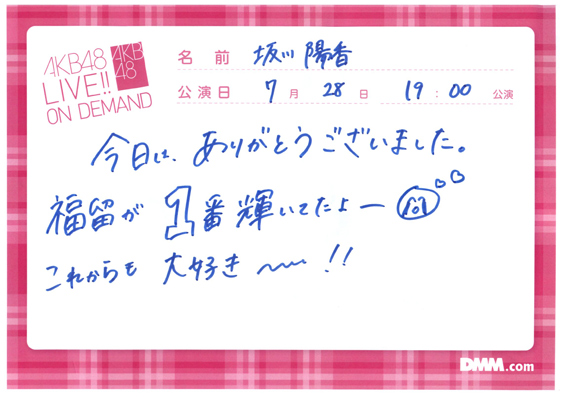 AKB48
LIVE!!
ON DEMAND
AKB
48
名前 坂川陽香
公演日 7月28日 19:00公演
今日は、ありがとうございました。
福留が1番輝いてたよー
これからも 大好き 〜 !!
DMM.com